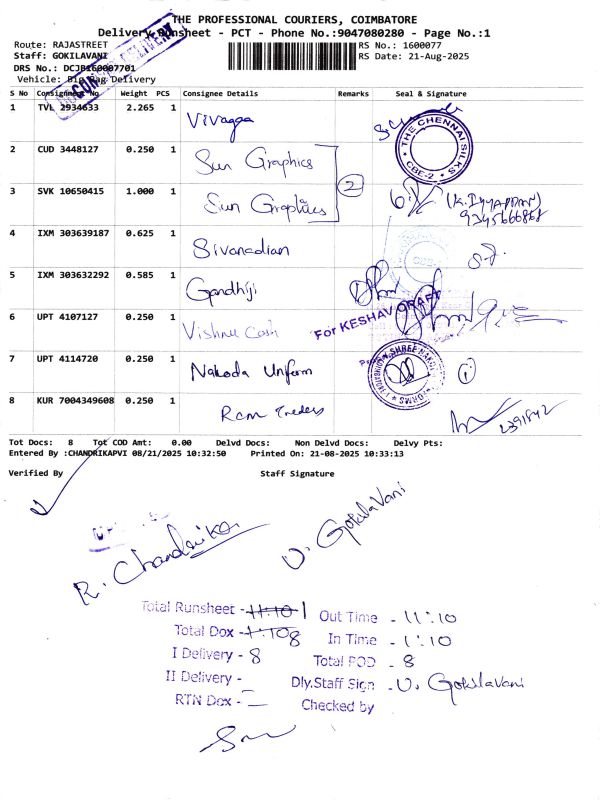 THE PROFESSIONAL COURIERS, COIMBATORE
Delivery Runsheet - PCT - Phone No.:9047080280 - Page No.:1
Route: RAJASTREET
RS No.: 1600077
Staff: GOKILAVANI
RS Date: 21-Aug-2025
DRS No.: DCJB160007701
Vehicle: Big Bag Delivery
S No Consignment No Weight PCS Consignee Details Remarks Seal & Signature
1 TVL 2934633 2.265 1 Vivagaa
THE CHENNAI SILKS CBE-2
2 CUD 3448127 0.250 1 Sun Graphics
2
3 SVK 10650415 1.000 1 Sun Graphics
(K. IYYAPPAN)
9345666868
4 IXM 303639187 0.625 1 Sivanadian
5 IXM 303632292 0.585 1 Gandhiji
For KESHAV CRAFT
6 UPT 4107127 0.250 1 Vishnu Cash
7 UPT 4114720 0.250 1 Nakoda Uniform
1
8 KUR 7004349608 0.250 1 Rcm Traders
2391842
Tot Docs: 8 Tot COD Amt: 0.00 Delvd Docs: Non Delvd Docs: Delvy Pts:
Entered By :CHANDRIKAPVI 08/21/2025 10:32:50 Printed On: 21-08-2025 10:33:13
Verified By Staff Signature
R. Chandrika
U. Gokilavani
Total Runsheet - 11:10 1
Out Time - 11:10
Total Dox - 1:10 8
In Time - 1:10
I Delivery - 8
Total POD - 8
II Delivery -
Dly.Staff Sign - U. Gokilavani
RTN Dox -
Checked by